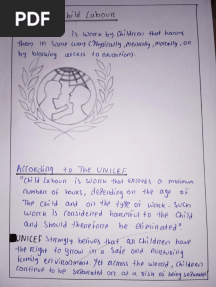 PDF
Child Labour
is work by children that harms
them in some way (Physically, mentally, morally, or
by blocking access to education).
According to The UNICEF
"Child Labour is work that exceeds a minimum
number of hours, depending on the age of
The child and on the type of work. Such
work is considered harmful to the child
and should therefore be eliminated"
UNICEF strongly belives that all children have
the right to grow in a safe and nurturing
family environment. Yet across the world, children
continue to be separated or at a risk of being separated